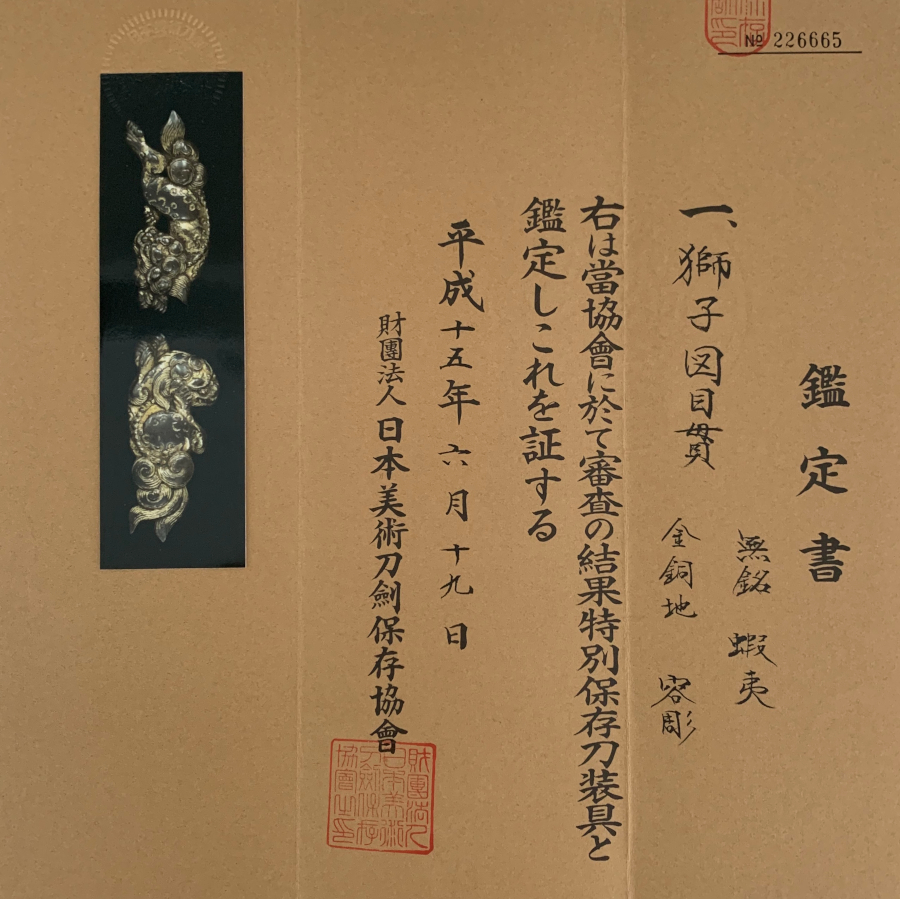 № 226665
鑑定書
無銘 蝦夷
一、獅子図目貫
金銅地 容彫
右は當協會に於て審査の結果特別保存刀装具と
鑑定しこれを証する
平成十五年六月十九日
財團法人日本美術刀劍保存協會
財團法人
日本美術
刀劍保存
協會之印